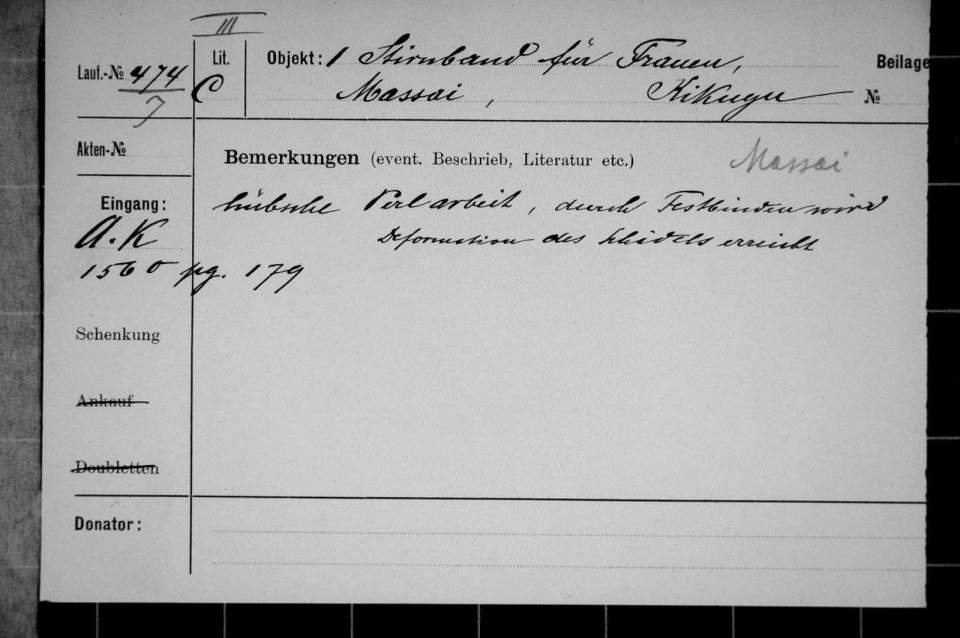 III
Lauf.-№ 474
7
Lit.
C
Objekt: 1 Stirnband für Frauen,
Massai, Kikuyu
Beilage
№
Akten-№
Bemerkungen (event. Beschrieb, Literatur etc.)
Massai
Eingang:
A.K
1560 pg. 179
hübsche Perlarbeit, durch Festbinden wird
Deformation des Schädels erreicht
Schenkung
Ankauf
Doubletten
Donator: